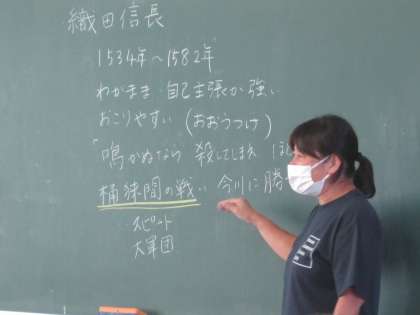 織田信長
1534年～1582年
わがまま・自己主張が強い
おこりやすい (おおうつけ)
「鳴かぬなら 殺してしまえ ほと
桶狭間の戦い 今川に勝
スピード
大軍団